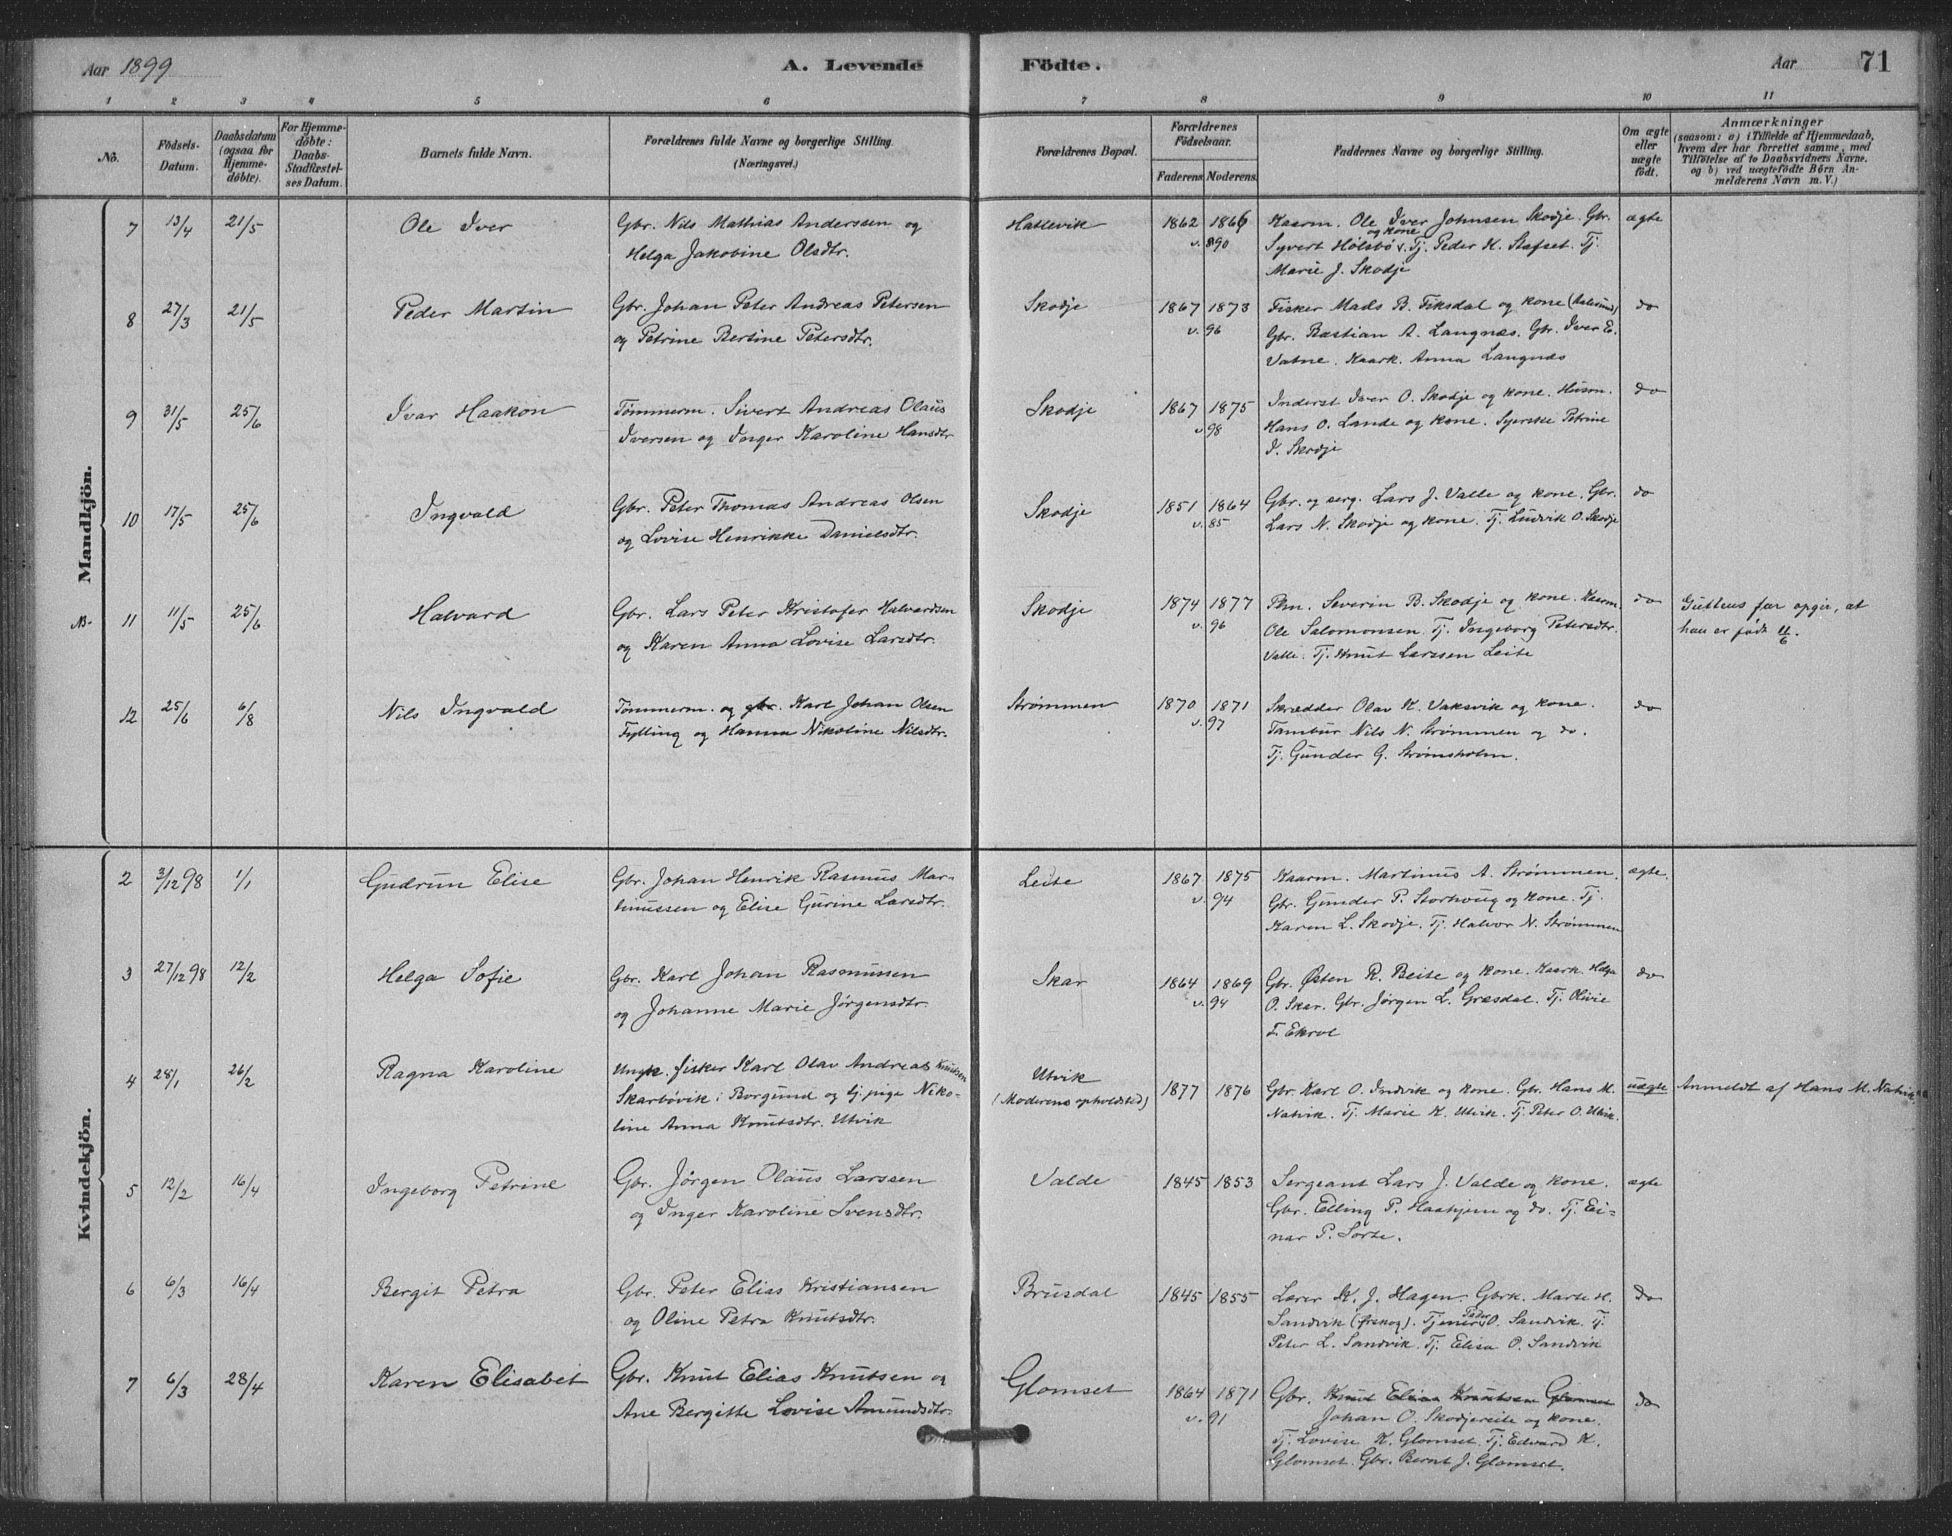 Aar 1899
A. Levende Födte.
Aar 71
1 2 3 4 5 6 7 8 9 10 11
No.
Födsels-Datum.
Daabsdatum (ogsaa for Hjemme-döbte).
For Hjemme-döbte: Daabs-Stadfæstel-ses Datum.
Barnets fulde Navn.
Forældrenes fulde Navne og borgerlige Stilling.
(Næringsvei.)
Forældrenes Bopæl.
Forældrenes Födselsaar.
Faderens Moderens.
Faddernes Navne og borgerlige Stilling.
Om ægte eller uægte födt.
Anmærkninger
(saasom: a) i Tilfælde af Hjemmedaab,
hvem der har forrettet samme, med
Tilföielse af to Daabsvidners Navne.
og b) ved uægtefödte Börn An-
melderens Navn m. V.)
Mandkjön.
7 13/4 21/5 Ole Iver Gbr. Nils Mathias Anderssen og Hattevik 1862 1866 Kaarm. Ole Iver Johnsen Skodje. Gbr. ægte
Helga Jakobine Olsdtr. v. 890 Syvert Hölsbö og kone. Tj. Peder K. Stafset. Tj.
Marie J. Skodje
8 27/3 21/5 Peder Martin Gbr. Johan Peter Andreas Petersen Skodje 1867 1873 Fisker Mads B. Fiksdal og kone (Aalesund) do
og Petrine Bertine Petersdtr. v. 96 Gbr. Bastian A. Langnæs. Gbr. Iver E.
Vatne. Kaark. Anna Langnæs
9 31/5 25/6 Ivar Haakon Tömmerm. Sivert Andreas Olaus Skodje 1867 1875 Inderst Iver O. Skodje og kone. Husm. do
Iversen og Inger Karoline Hansdtr v. 98 Hans O. Lande og kone. Syerske Petrine
I. Skodje
10 17/5 25/6 Ingvald Gbr. Peter Thomas Andreas Olsen Skodje 1851 1864 Gbr. og serg. Lars J. Valle og kone. Gbr. do
og Lovise Henrikke Danielsdtr. v. 85 Lars N. Skodje og kone. Tj. Ludvik O. Skodje
NB. 11 11/5 25/6 Halvard Gbr. Lars Peter Kristofer Halvardsen Skodje 1874 1877 Pkm. Severin B. Skodje og kone. Kaarm. do Guttens far opgir, at
og Karen Anna Lovise Larsdtr. v. 96 Ole Salomonsen. Tj. Ingeborg Petersdtr. han er födt 11/6.
Valle. Tj. Knut Larssen Leite
12 25/6 6/8 Nils Ingvald Tömmerm. og gbr. Karl Johan Olsen Strømmen 1870 1871 Skrædder Olav K. Vaksvik og kone. do
Fylling og Hanna Nikoline Nilsdtr. v. 97 Tambur Nils N. Strømmen og do.
Tj. Gunder G. Strømsholm.
Kvindekjön.
2 3/12 98 1/1 Gudrun Elise Gbr. Johan Henrik Rasmus Mar- Leite 1867 1875 Kaarm. Martinus A. Strømmen. ægte.
tinussen og Elise Gurine Larsdtr. v. 94 Gbr. Gunder P. Storhaug og kone. Tj.
Karen L. Skodje. Tj. Halvor N. Strømmen
3 27/12 98 12/2 Helga Sofie Gbr. Karl Johan Rasmussen Skar 1864 1869 Gbr. Østen R. Beite og kone. Kaark. Helga do
og Johanne Marie Jørgensdtr. v. 94 O. Skar. Gbr. Jørgen L. Græsdal. Tj. Olivie
T. Ekrol
4 28/1 26/2 Ragna Karoline Ungk. fisker Karl Olav Andreas Knutsen Utvik 1877 1876 Gbr. Karl O. Indvik og kone. Gbr. Hans M. uægte Anmeldt af Hans M. Natvik
Skarbövik i Borgund og tj.pige Niko- (Moderens opholdsted) Natvik. Tj. Marie K. Utvik. Tj. Peter O. Utvik.
line Anna Knutsdtr. Utvik
5 12/2 16/4 Ingeborg Petrine Gbr. Jørgen Olaus Larssen Valde 1845 1853 Sergeant Lars J. Valde og kone. ægte
og Inger Karoline Svensdtr. Gbr. Elling P. Haahjem og do. Tj. Ei-
nar P. Sorte.
6 6/3 16/4 Bergit Petra Gbr. Peter Elias Kristiansen Brusdal 1845 1855 Lærer K. J. Hagen. Gbrk. Marte H. do
og Oline Petra Knutsdtr. Sandvik (Ørskog). Tjener Peder O. Sandvik. Tj.
Peter L. Sandvik. Tj. Elisa O. Sandvik
7 6/3 28/4 Karen Elisabet Gbr. Knut Elias Knutsen og Glomset 1864 1871 Gbr. Knut Elias Knutsen Glomset do
Ane Bergitte Lovise Amundsdtr. v. 91 Johan O. Skodjereite og kone.
Tj. Lovise K. Glomset. Tj. Edvard K.
Glomset. Gbr. Bernt J. Glomset.